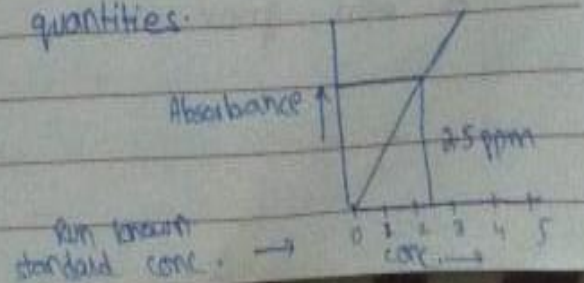 quantities.
Absorbance ↑
2.5 ppm
Run known
standard conc. →
0 1 2 3 4 5
conc. →